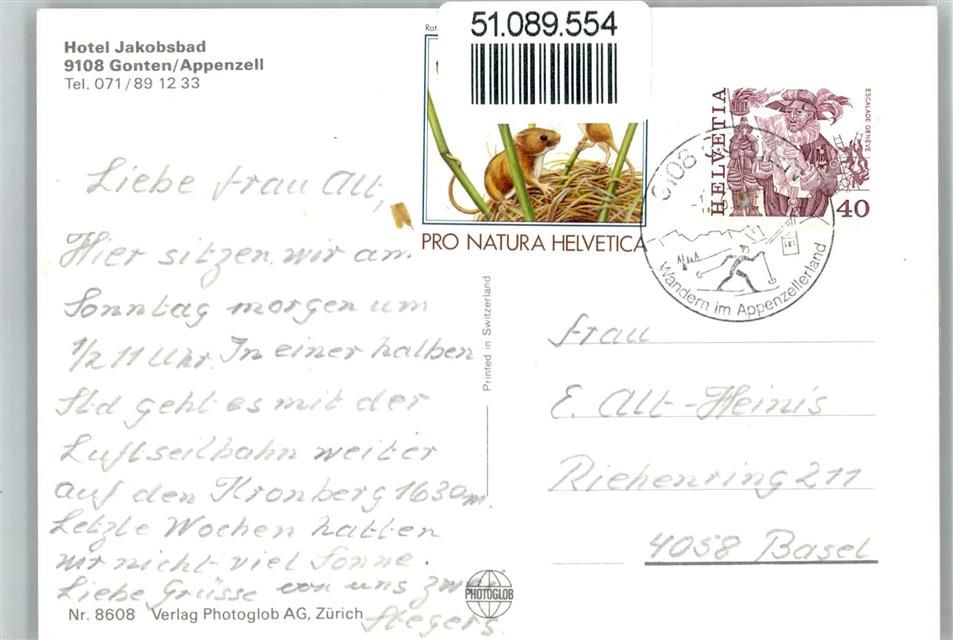 Hotel Jakobsbad
9108 Gonten/Appenzell
Tel. 071/89 12 33
51.089.554
PRO NATURA HELVETICA
HELVETIA
ESCALADE GENÈVE
40
9108
Wandern im Appenzellerland
Liebe Frau Alt,
Hier sitzen wir am
Sonntag morgen um
1/2 11 Uhr. In einer halben
Std geht es mit der
Luftseilbahn weiter
auf den Kronberg 1630m.
Letzte Wochen hatten
wir nicht viel Sonne.
Liebe Grüsse von uns
Stegers
Printed in Switzerland
Frau
E. Alt-Heinis
Riehenring 211
4058 Basel
Nr. 8608 Verlag Photoglob AG, Zürich
PHOTOGLOB